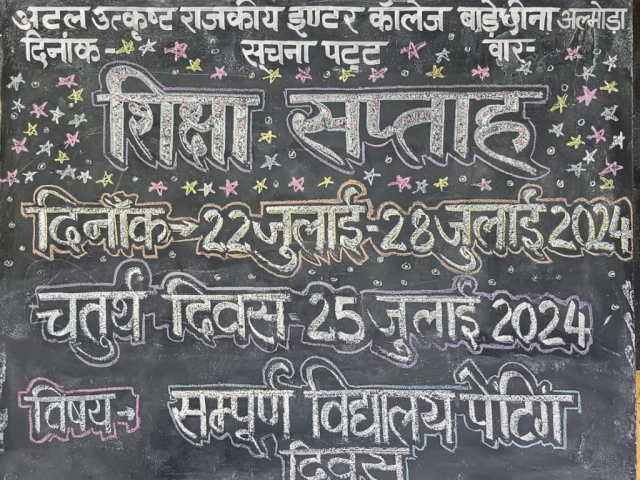 अटल उत्कृष्ट राजकीय इण्टर कॉलेज बाड़ेछीना अल्मोड़ा
दिनांक - सूचना पट्ट वार:-
शिक्षा सप्ताह
दिनाँक→ 22 जुलाई - 28 जुलाई 2024
चतुर्थ दिवस - 25 जुलाई 2024
विषय→ सम्पूर्ण विद्यालय पेंटिंग
दिवस